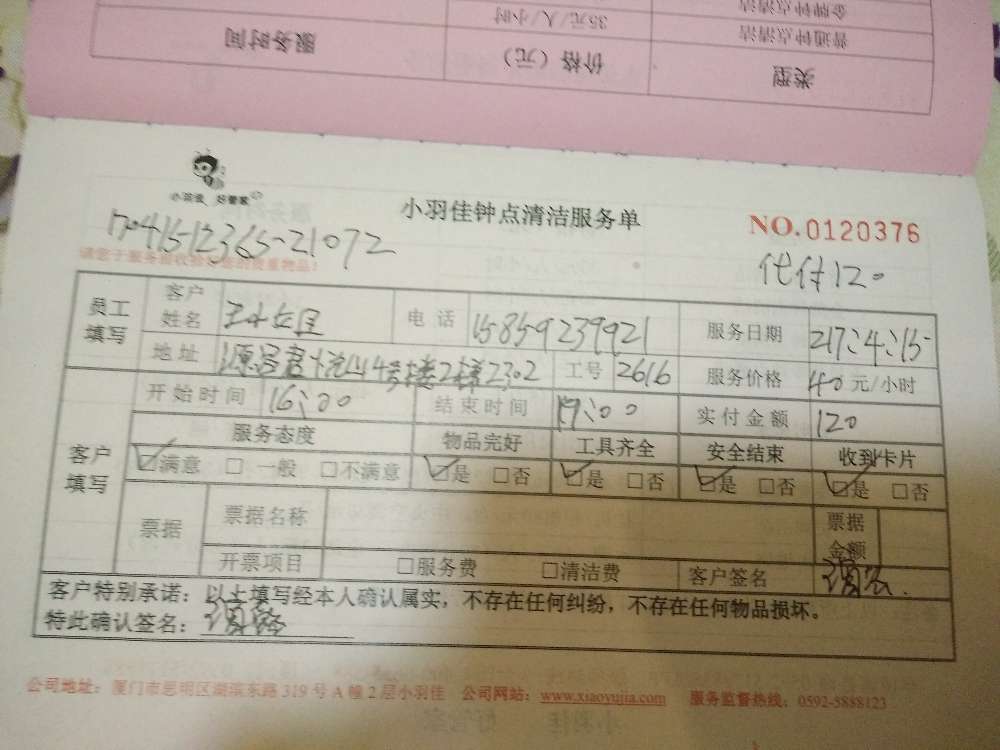 金牌钟点清洁
普通钟点清洁 35元/人/小时
类型 价格（元） 服务时间
小羽佳 好管家
小羽佳钟点清洁服务单
NO.0120376
170415-12365-21072
代付120
请您于服务前收验好您的贵重物品！
员工填写 客户姓名 电话 15859239921 服务日期 217.4.15
地址 4号楼2梯2302 工号 2616 服务价格 40 元/小时
客户填写 开始时间 16:00 结束时间 19:00 实付金额 120
服务态度 物品完好 工具齐全 安全结束 收到卡片
☑满意 □一般 □不满意 ☑是 □否 ☑是 □否 ☑是 □否 ☑是 □否
票据 票据名称 票据金额
开票项目 □服务费 □清洁费 客户签名
客户特别承诺：以上填写经本人确认属实，不存在任何纠纷，不存在任何物品损坏。
特此确认签名：
公司地址：厦门市思明区湖滨东路 319 号 A 幢 2 层小羽佳 公司网站：www.xiaoyujia.com 服务监督热线：0592-5888123